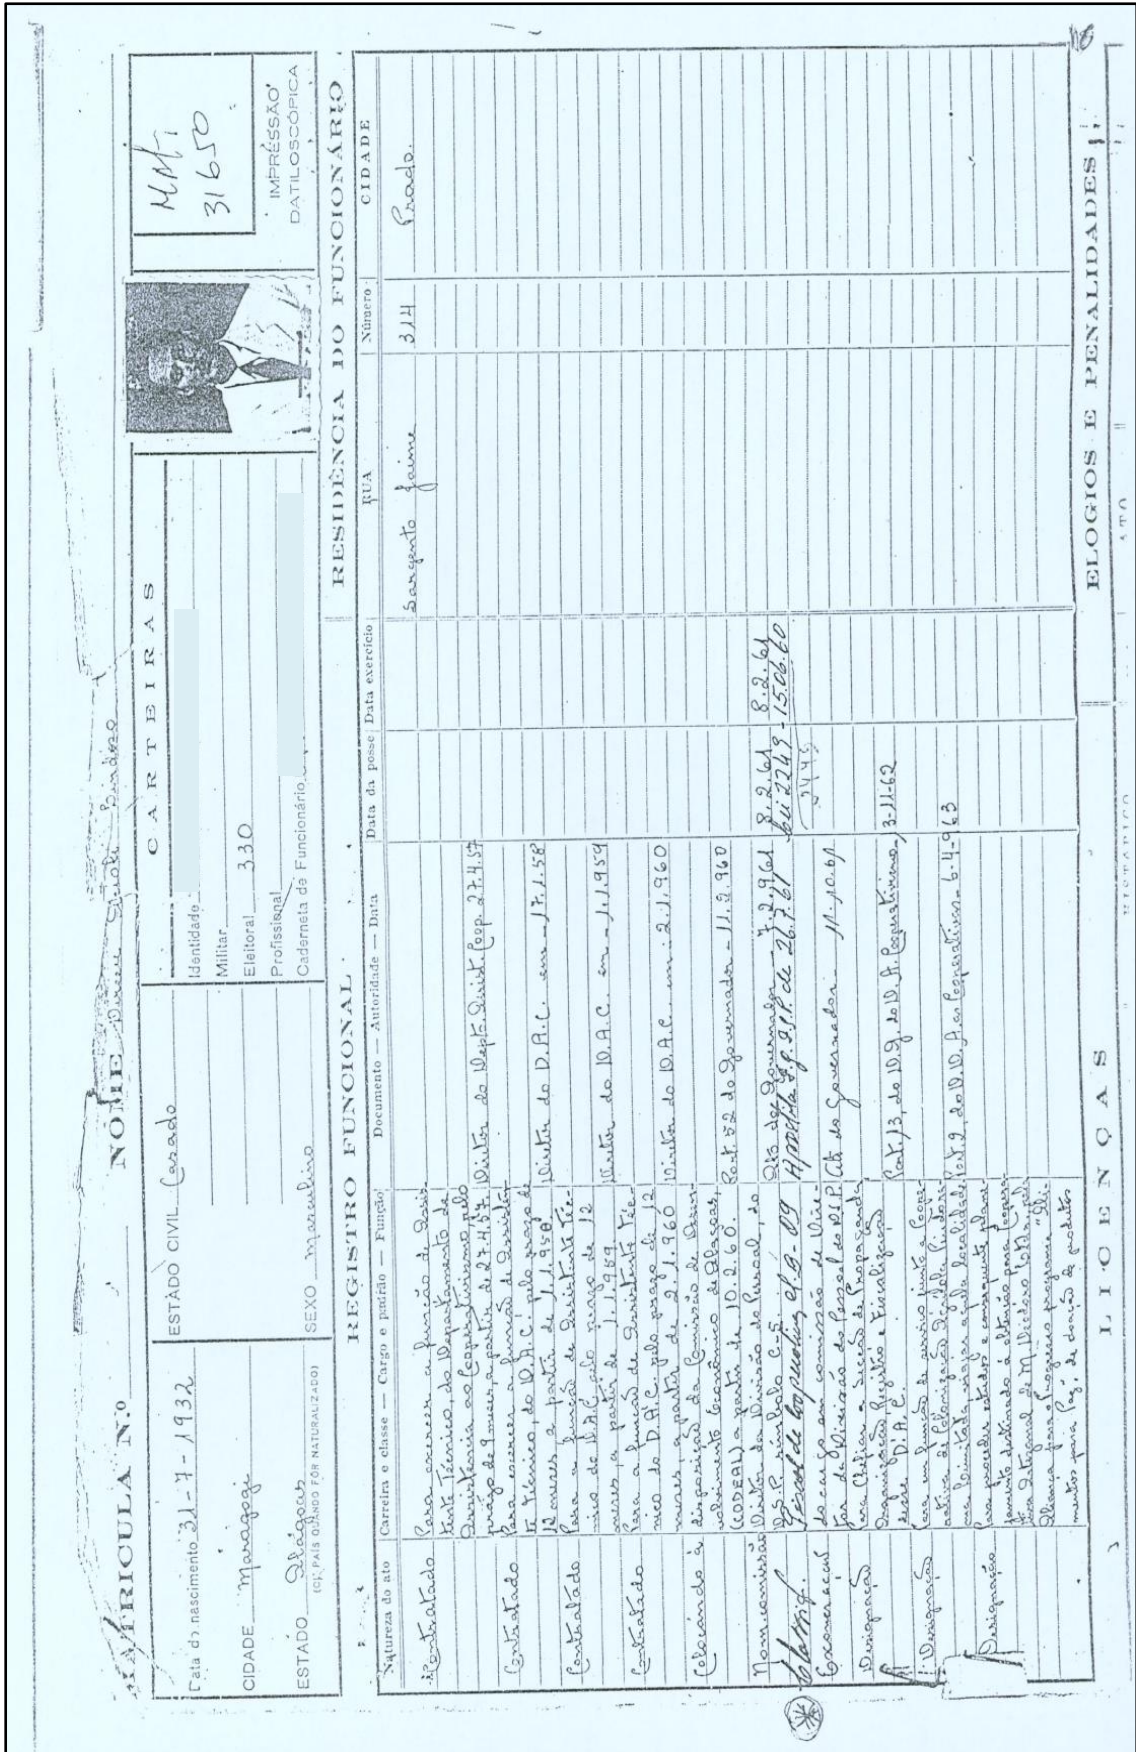 MATRICULA N.º
NOME Dirceu Accioly Lindoso
Data do nascimento 31-7-1932
CIDADE Maragogi
ESTADO Alagoas
(OU PAÍS QUANDO FÔR NATURALIZADO)
ESTADO CIVIL Casado
SEXO Masculino
CARTEIRAS
Identidade
Militar
Eleitoral 330
Profissional
Caderneta de Funcionário
Mat.
31650
IMPRESSÃO
DATILOSCÓPICA
REGISTRO FUNCIONAL
RESIDÊNCIA DO FUNCIONÁRIO
Natureza do ato
Carreira e classe — Cargo e padrão — Função
Documento — Autoridade — Data
Data da posse
Data exercício
RUA
Número
CIDADE
Sargento Jaime
314
Prado.
Contratado
Para exercer a função de Assis-
tente Técnico, do Departamento de
Assistência ao Cooperativismo, pelo
prazo de 9 meses, a partir de 27.4.57
Diretor do Depto. Assist. Coop. 27.4.57
Contratado
Para exercer a função de Assisten-
te Técnico, do D.A.C. pelo prazo de
12 meses, a partir de 1.1.958
Diretor do D.A.C. em - 17.1.58
Contratado
Para a função de Assistente Téc-
nico do D.A.C. pelo prazo de 12
meses, a partir de 1.1.959.
Diretor do D.A.C. em - 1.1.959
Contratado
Para a função de Assistente Téc-
nico do D.A.C. pelo prazo de 12
meses, a partir de 2.1.960
Diretor do D.A.C. em: 2.1.960
Colocando à
disposição da Comissão de Desen-
volvimento Econômico de Alagoas,
(CODEAL) a partir de 10.2.60.
Port. 52 do Governador - 11.2.960
Nom. comissão
Diretor da Divisão do Pessoal, do
D.S.P. símbolo C-5.
Ato do Governador 7.2.961
8.2.61
8.2.61
Classif.
Fiscal de Cooperativa
Apostila
de 26.7.61
Lei 2249 - 15.06.60
Exoneração
do cargo em comissão de Dire-
tor da Divisão do Pessoal do DSP
Ato do Governador 11.10.61
Designação
Para Chefiar a Secção de Propaganda
Organização Registro e Fiscalização
deste D.A.C.
Port. 13, do D.G. do D.A. Cooperativismo, 3-11-62
Designação
Para em função de serviço junto a Coope-
rativa de Colonização Agrícola Pindora-
ma Limitada, viajar até a localidade
Port. 2, do D.D.A. ao Cooperativismo - 6-4-963
Designação
Para proceder estudos e consequente plane-
jamento destinado
programa "Ali-
mentos para Paz", de doação de produtos
LICENÇAS
ELOGIOS E PENALIDADES
HISTÓRICO
ATO